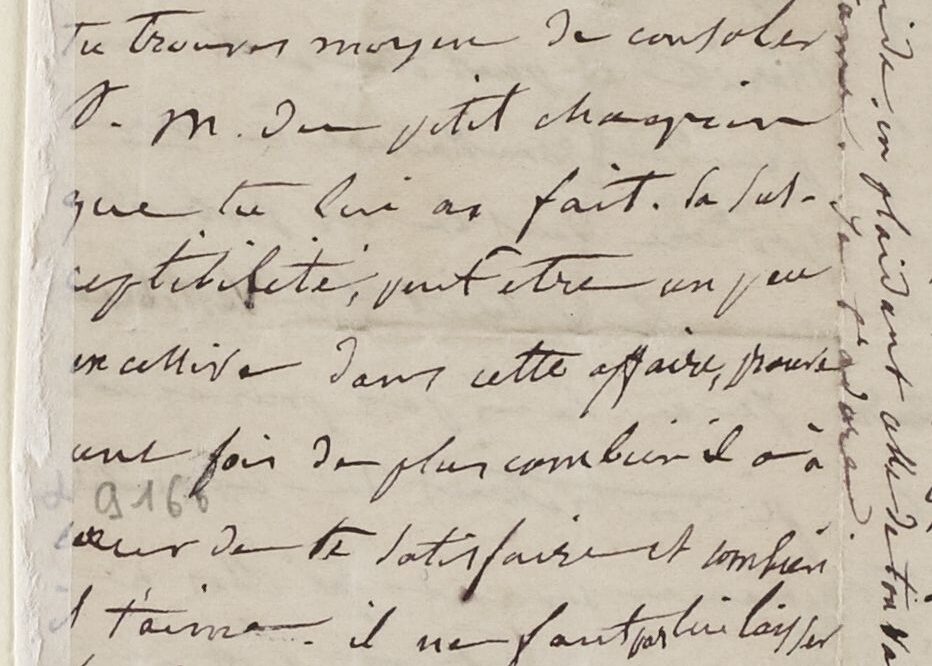 tu trouves moyen de consoler
S. M. du petit chagrin
que tu lui as fait. Sa sus-
ceptibilité, peut etre un peu
excessive dans cette affaire, prouve
une fois de plus combien il a à
cœur de te satisfaire et combien
il t'aime. il ne faut pas lui laisser
9166
en plaidant
je t'adore